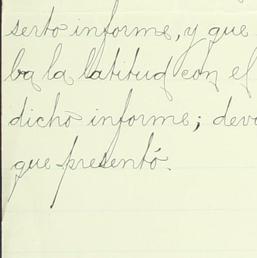 serto informe, y que
ba la latitud con el
dicho informe; devo
que presentó.